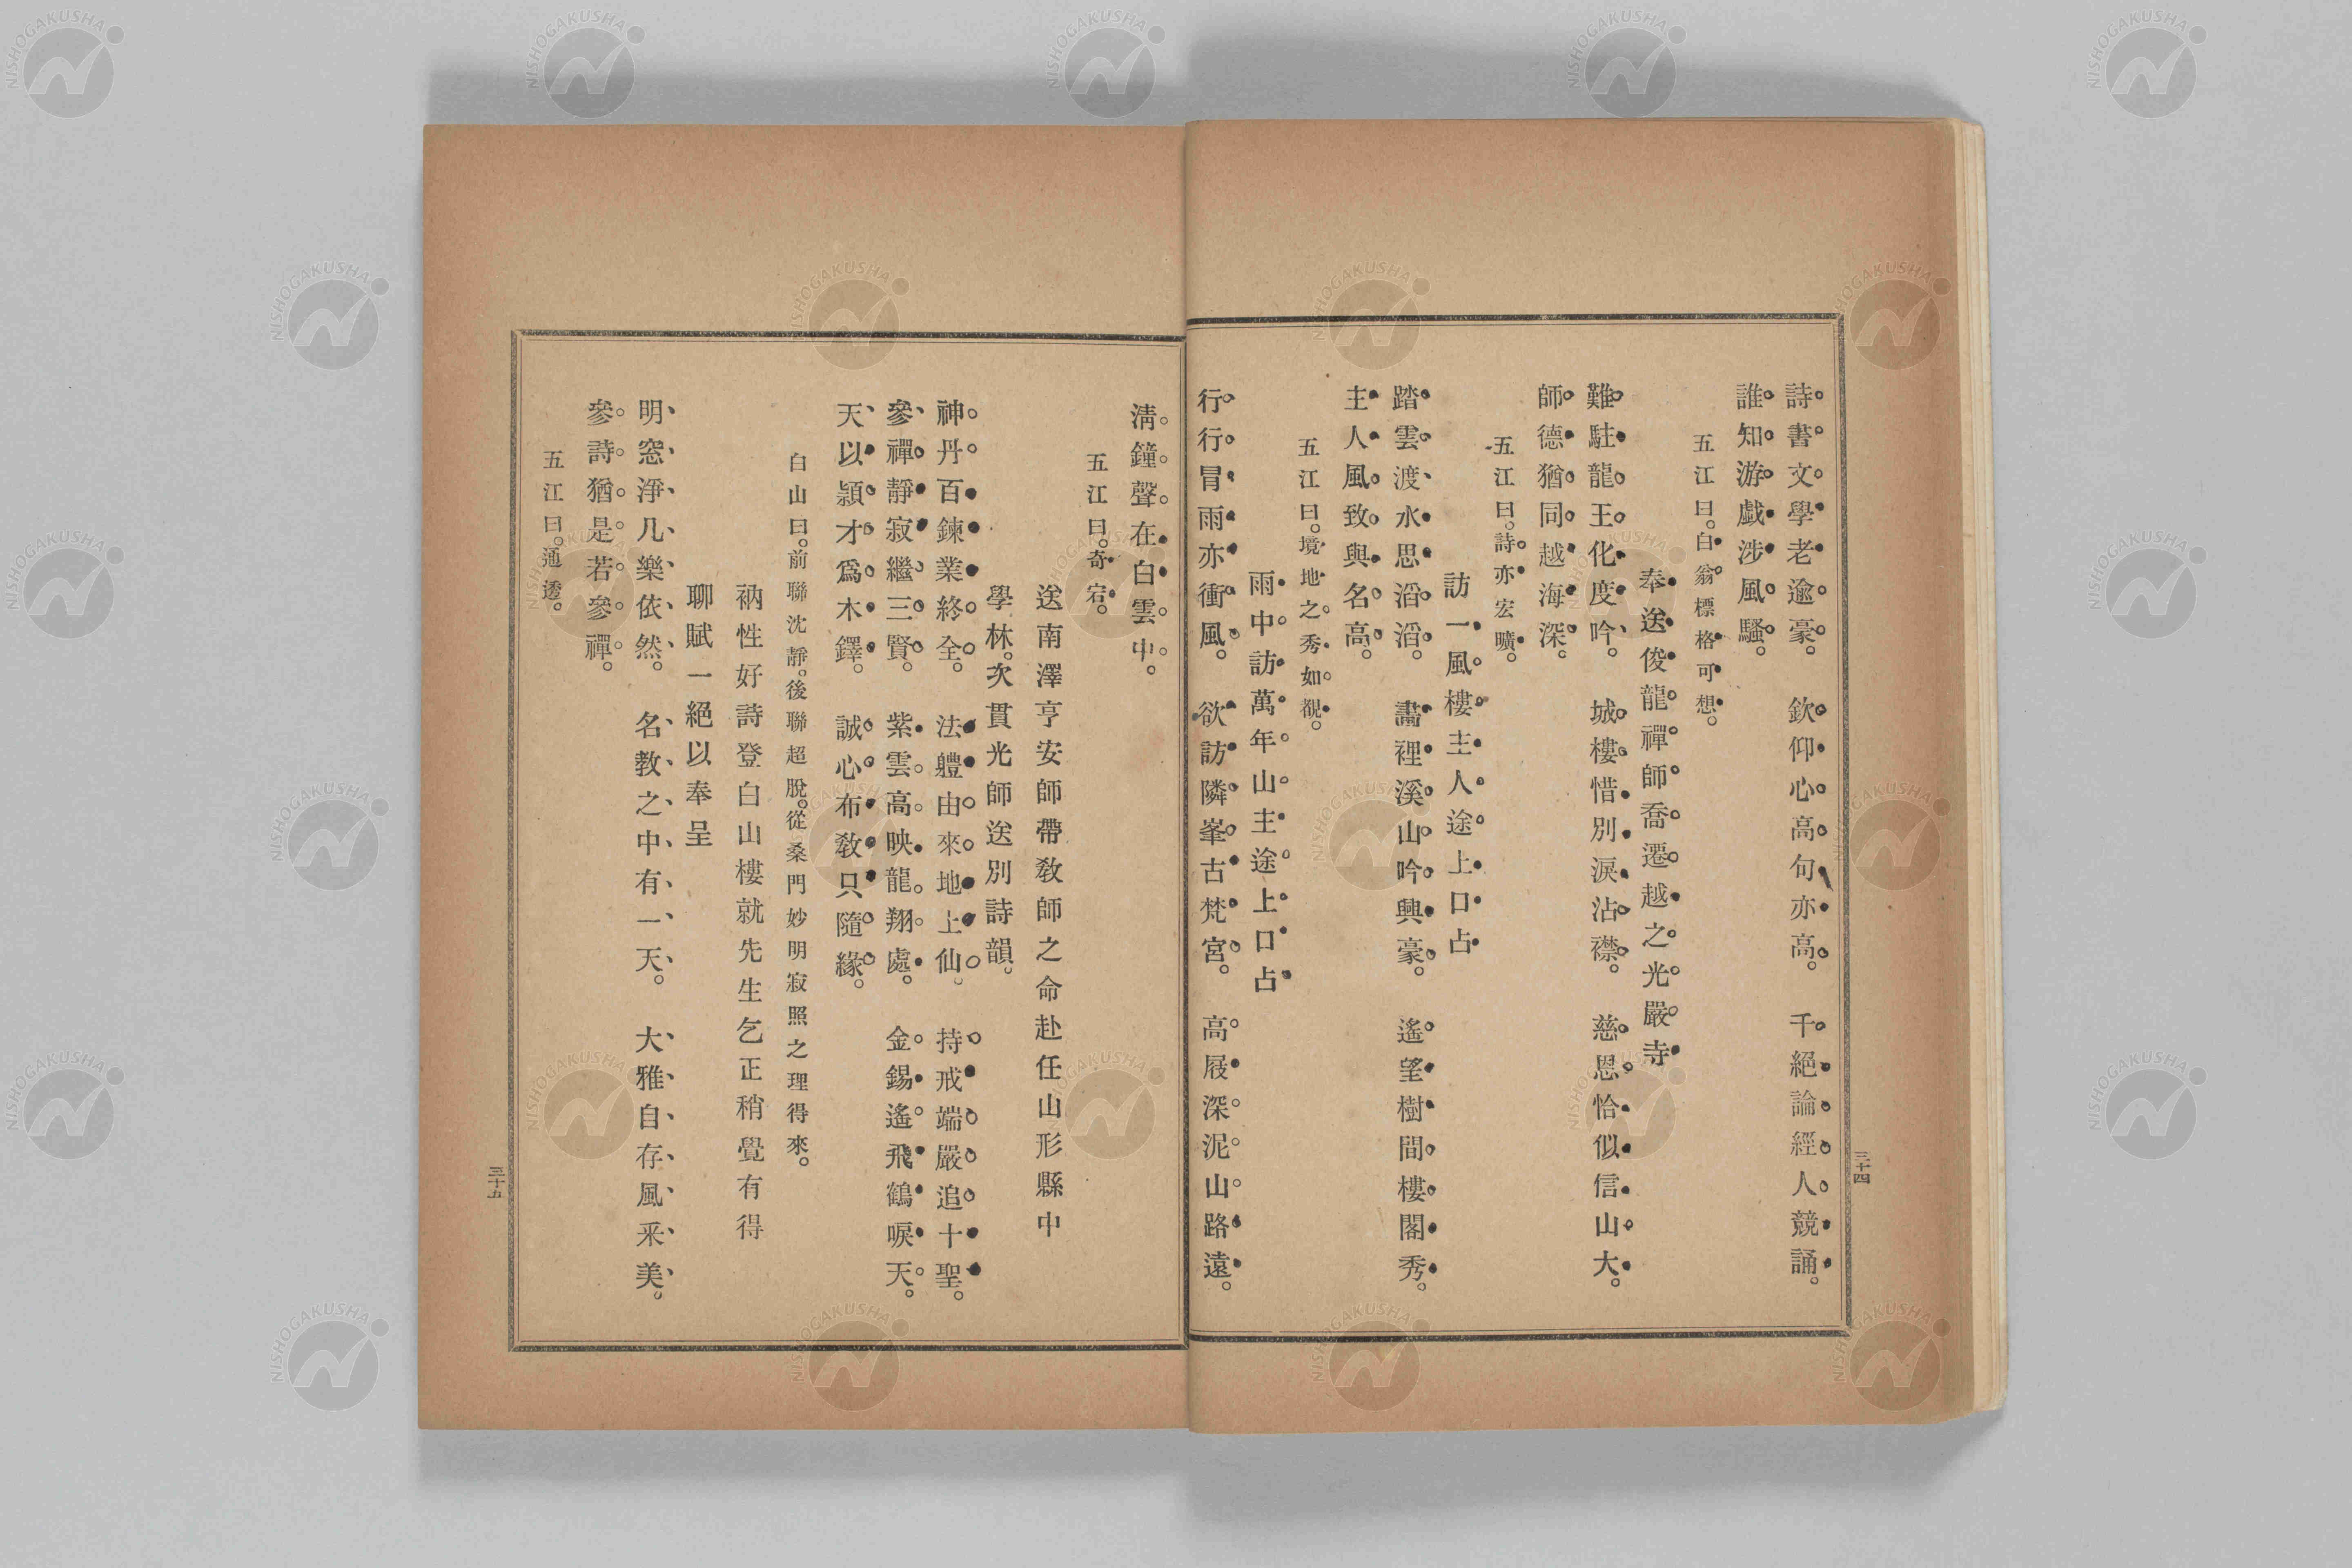 詩書文學老逾豪。　欽仰心高句亦高。　千絕論經人競誦。
誰知游戲涉風騷。
五江曰。白翁標格可想。
奉送俊龍禪師喬遷越之光嚴寺
難駐龍王化度吟。　城樓惜別淚沾襟。　慈恩恰似信山大。
師德猶同越海深。
五江曰。詩亦宏曠。
訪一風樓主人途上口占
踏雲渡水思滔滔。　畵裡溪山吟興豪。　遙望樹間樓閣秀。
主人風致與名高。
五江曰。境地之秀如覩。
雨中訪萬年山主途上口占
行行冒雨亦衝風。　欲訪隣峯古梵宮。　高屐深泥山路遠。
三十四
淸鐘聲在白雲中。
五江曰。奇宕。
送南澤亨安師帶敎師之命赴任山形縣中
學林。次貫光師送別詩韻。
神丹百鍊業終全。　法軆由來地上仙。　持戒端嚴追十聖。
參禪靜寂繼三賢。　紫雲高映龍翔處。　金錫遙飛鶴唳天。
天以顯才爲木鐸。　誠心布敎只隨緣。
白山曰。前聯沈靜。後聯超脫。從桑門妙明寂照之理得來。
衲性好詩登白山樓就先生乞正稍覺有得
聊賦一絕以奉呈
明窓淨几樂依然。　名敎之中有一天。　大雅自存風釆美。
參詩猶是若參禪。
五江曰。通透。
三十五
NISHOGAKUSHA